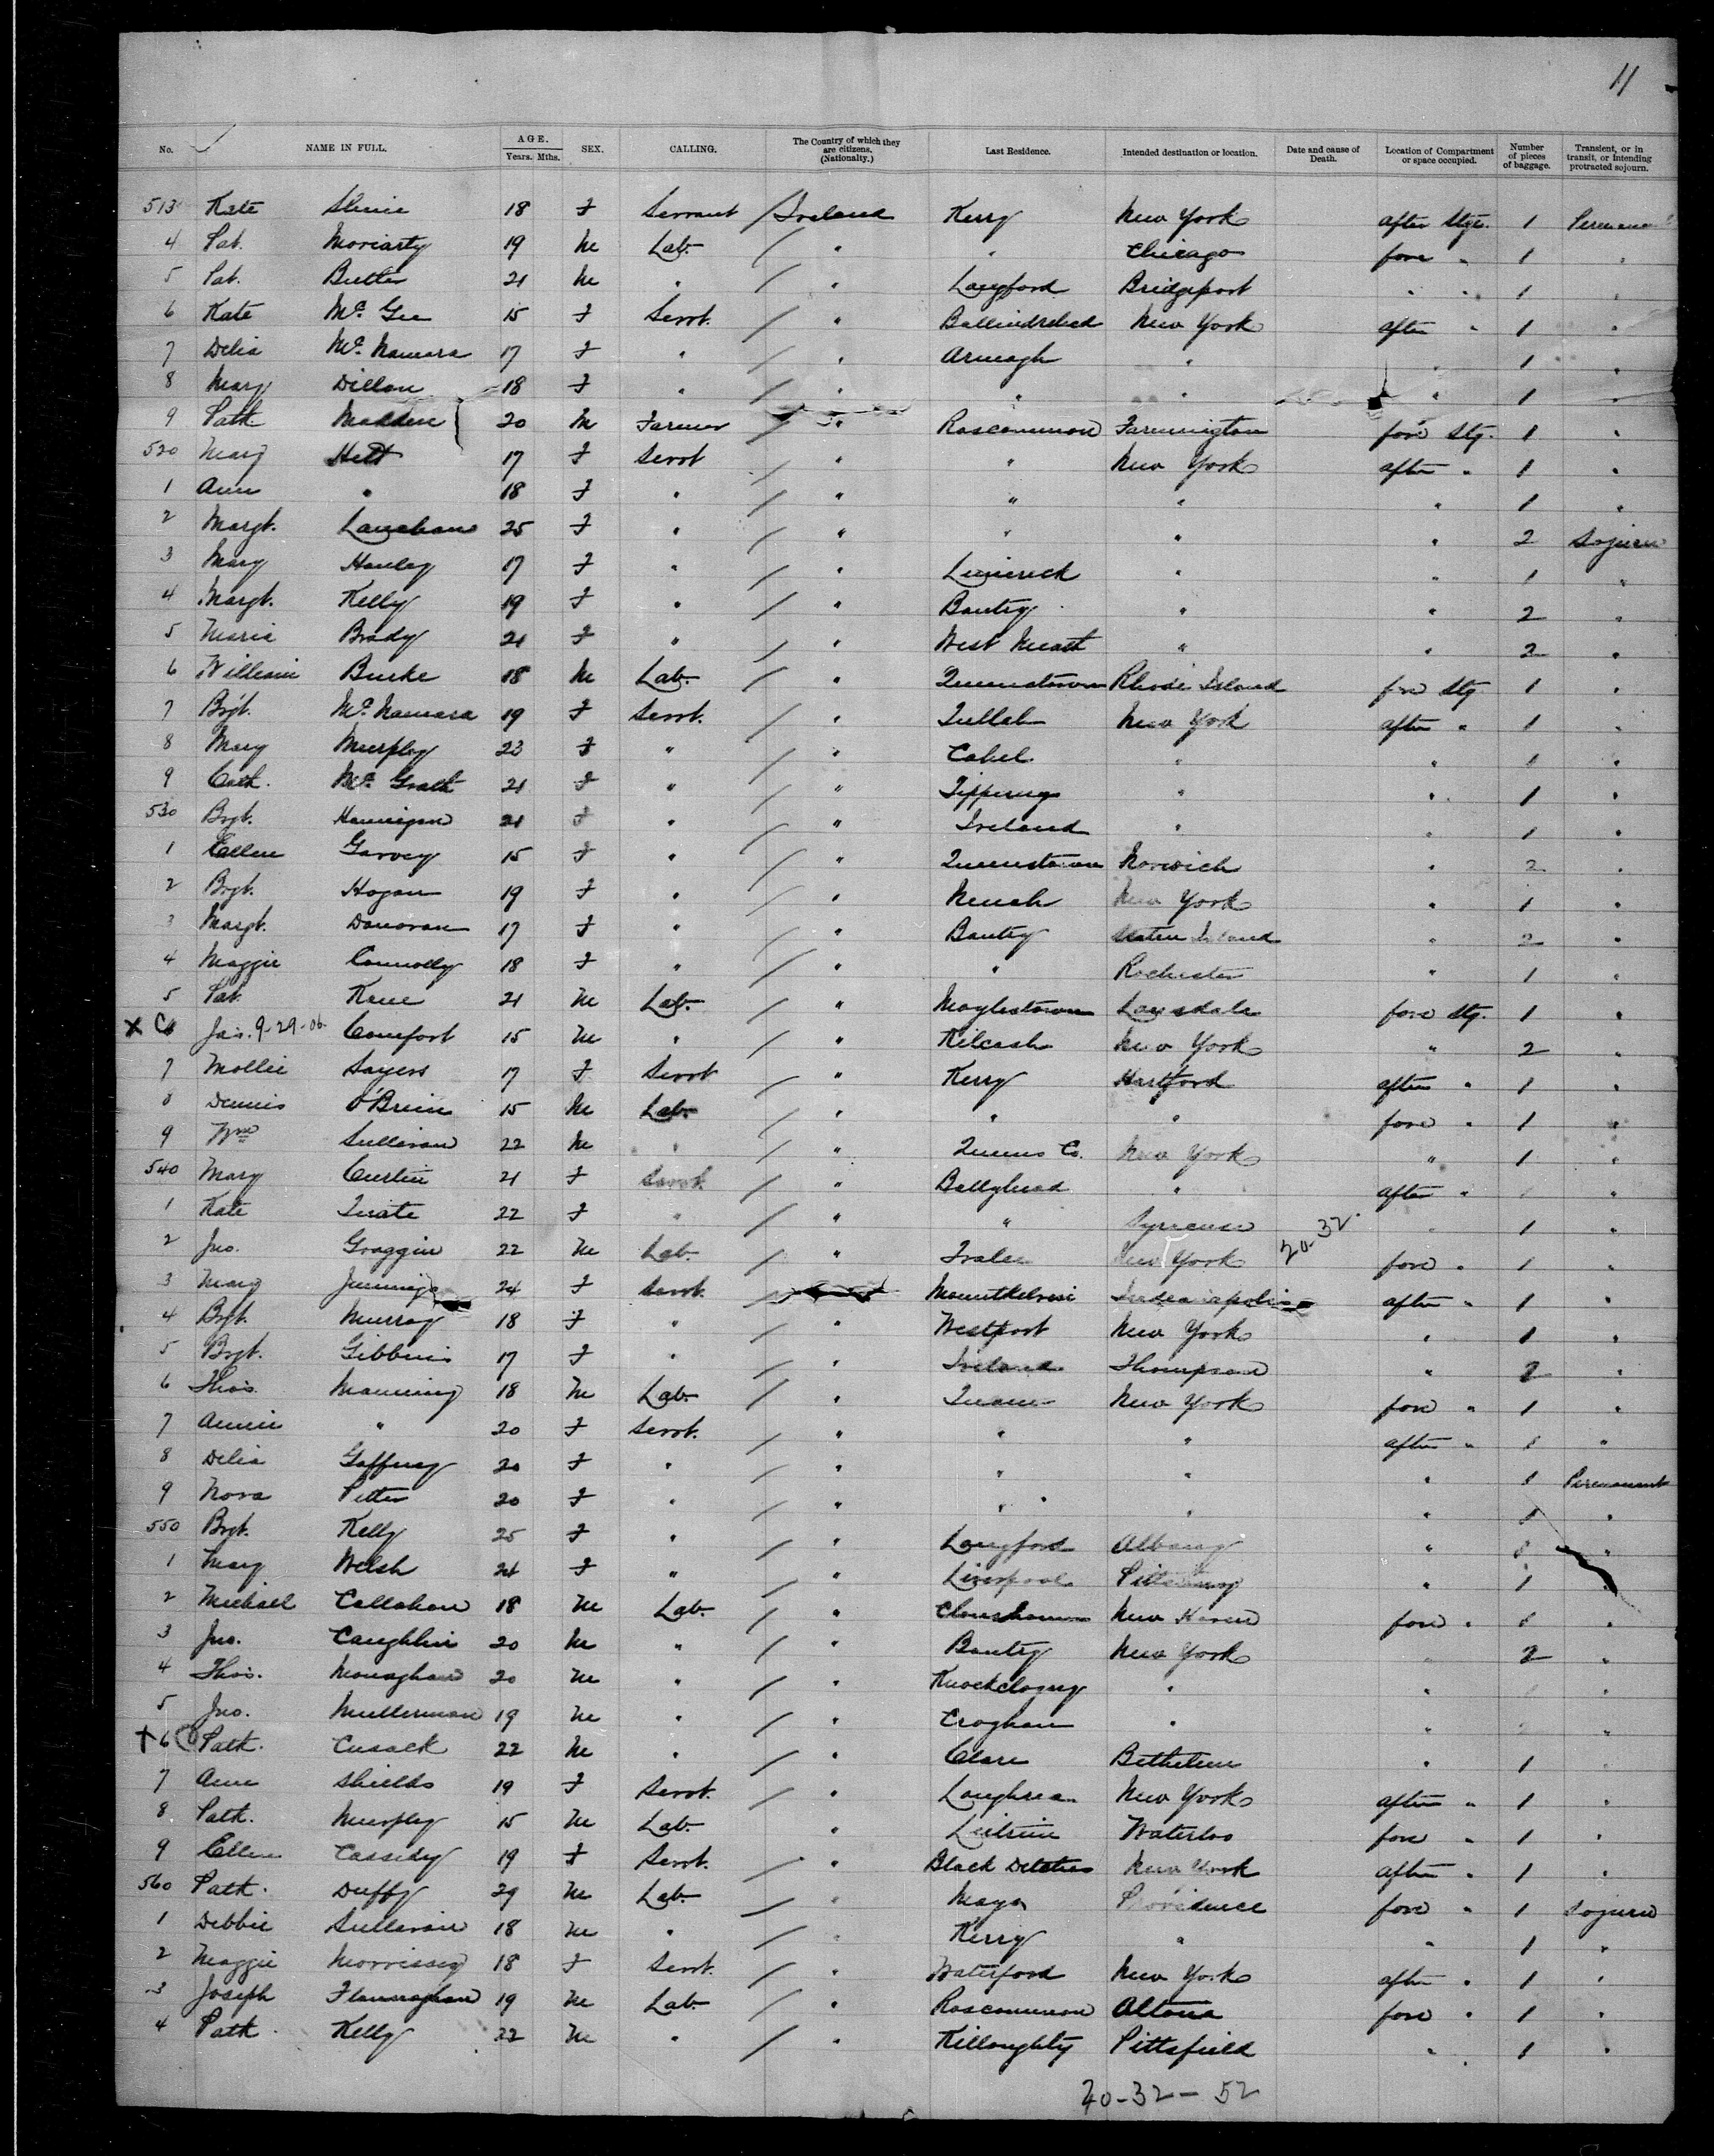 11
No. NAME IN FULL. AGE. Years. Mths. SEX. CALLING. The Country of which they are citizens. (Nationality.) Last Residence. Intended destination or location. Date and cause of Death. Location of Compartment or space occupied. Number of pieces of baggage. Transient, or in transit, or intending protracted sojourn.
513 Kate 18 F Servant / Ireland Kerry New York after Stge. 1 Permanent
4 Pat. Moriarty 19 M Lab. / " " Chicago fore " 1 "
5 Pat. Butler 21 M " / " Longford Bridgeport " " 1 "
6 Kate Mc. Gee 15 F Servt. / " New York after " 1 "
7 Delia Mc. Namara 17 F " / " Armagh " " 1 "
8 Mary Dillon 18 F " / " " " " 1 "
9 Patk. Madden 20 M Farmer / " Roscommon Farmington fore Stg. 1 "
520 Mary Hett 17 F Servt / " " New York after " 1 "
1 Ann " 18 F " / " " " " 1 "
2 Margt. 25 F " / " " " " 2 Sojurn
3 Mary Hanley 17 F " / " Limerick " " 1 "
4 Margt. Kelly 19 F " / " Bantry " " 2 "
5 Maria Brady 21 F " / " West Meath " " 2 "
6 William Burke 18 M Lab. / " Queenstown Rhode Island fore Stg 1 "
7 Brgt. Mc. Namara 19 F Servt. / " Tullah New York after " 1 "
8 Mary Murphy 23 F " / " Cahel " " 1 "
9 Cath. Mc. Grath 21 F " / " Tipperary " " 1 "
530 Brgt. Hannigan 21 F " / " Ireland " " 1 "
1 Ellen Garvey 15 F " / " Queenstown Norwich " 2 "
2 Brgt. Hogan 19 F " / " Nenah New York " 1 "
3 Margt. Donovan 17 F " / " Bantry Staten Island " 2 "
4 Maggie Connolly 18 F " / " " Rochester " 1 "
5 Pat. Kane 21 M Lab. / " Moylestown Lansdale fore Stg. 1 "
X C Jas. 9-29-06 Comfort 15 M " / " Kilcash New York " 2 "
7 Mollie Sayers 17 F Servt / " Kerry Hartford after " 1 "
8 Dennis O'Brien 15 M Lab. / " " " fore " 1 "
9 Wm Sullivan 22 M " / " Queens Co. New York " 1 "
540 Mary Curtin 21 F Servt. / " " after " "
1 Kate 22 F " / " " Syracuse " 1 "
20-32.
2 Jno. Groggin 22 M Lab. / " Tralee New York fore " 1 "
3 Mary Jennings 24 F Servt. / Indianapolis after " 1 "
4 Brgt. Murray 18 F " / " Westport New York " 1 "
5 Brgt. Gibbins 17 F " / " Ireland Thompson " 2 "
6 Thos. Manning 18 M Lab. / " Tuam New York fore " 1 "
7 Annie " 20 F Servt. / " " " after " 1 "
8 Delia Gaffney 20 F " / " " " " 1 Permanent
9 Nora Petter 20 F " / " " " " 1 "
550 Brgt. Kelly 25 F " / " Longford Albany " 1 "
1 Mary Welsh 21 F " / " Liverpool Pittsburg " 1 "
2 Michael Callahan 18 M Lab. / " New Haven fore " 1 "
3 Jno. Caughlin 20 M " / " Bantry New York " 2 "
4 Thos. Monaghan 20 M " / " " " "
5 Jno. Mullerman 19 M " / " Croghan " " "
X 6 Patk. Cusack 22 M " / " Clare Bethelem " 1 "
7 Ann Shields 19 F Servt. / " Loughrea New York after " 1 "
8 Patk. Murphy 15 M Lab. " Leitrim Waterloo fore " 1 "
9 Ellen Cassidy 19 F Servt. / " Black Ditches New York after " 1 "
560 Patk. Duffy 29 M Lab. / " Mayo Providence fore " 1 Sojurn
1 Debbie Sullivan 18 M " / " Kerry " " 1 "
2 Maggie Morrissey 18 F Servt. / " Waterford New York after " 1 "
3 Joseph Flannaghan 19 M Lab. / " Roscommon Altona fore " 1 "
4 Patk. Kelly 22 M " / " Killoughty Pittsfield " 1 "
20-32-52